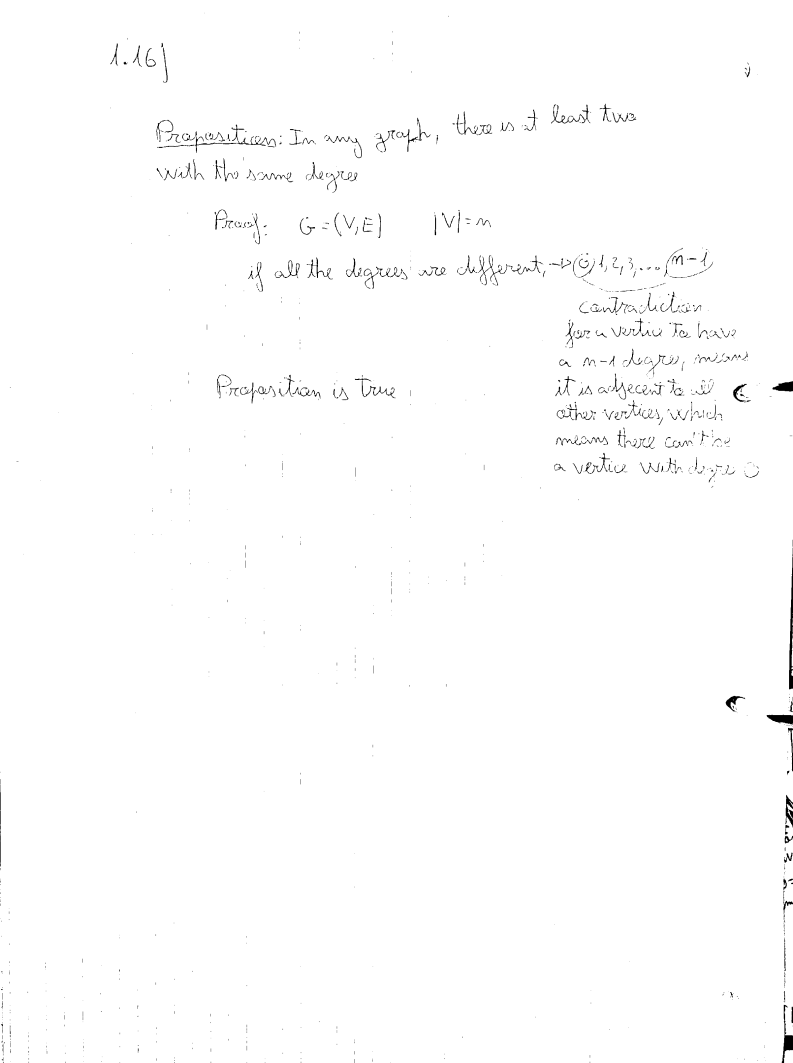 1.16)
Proposition: In any graph, there is at least two
with the same degree
Proof: G=(V,E) |V|=n
if all the degrees are different, → 0,1,2,3,...,n-1
contradiction
for a vertice to have
a n-1 degree, means
it is adjecent to all
other vertices, which
means there can't be
a vertice with degre 0
Proposition is true